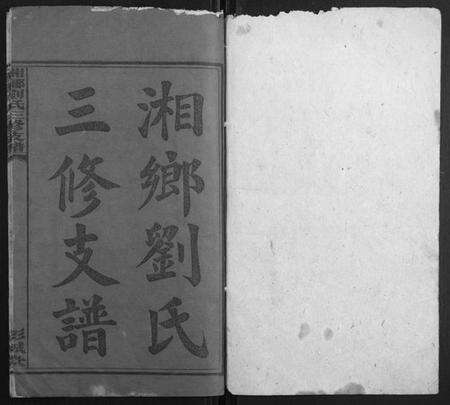 湘鄉劉氏
三修支譜
湘鄉劉氏三修支譜
彭城堂